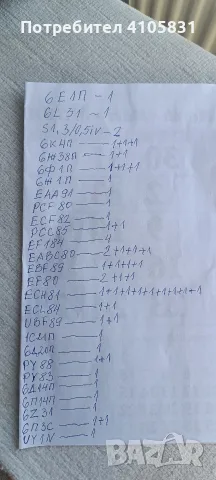 Телефон 4105831
6Е1П ~ 1
6L31 ~ 1
S1,3/0,5iV - 2
6К4П — 1+1+1
6Ж38П — 1+1
6Ф1П — 1+1+1
6Ж1П — 1
EAA91 — 1
PCF80 — 1
ECF82 — 1
PCC85 — 1+1
EF184 — 4
EABC80 — 2+1+1+1
EBF89 — 1+1+1+1
EF80 — 2+1+1
ECH81 — 1+1+1+1+1+1+1+1+1
ECL84 — 1+1
UBF89 — 1+1
1С21П — 1
6Д20П — 1
PY88 — 1+1
PY83 — 1
6Д14П — 1
6П14П — 1
6Z31 — 1
6П3С — 1+1
UY1N — 1
bazar
БАЗАР